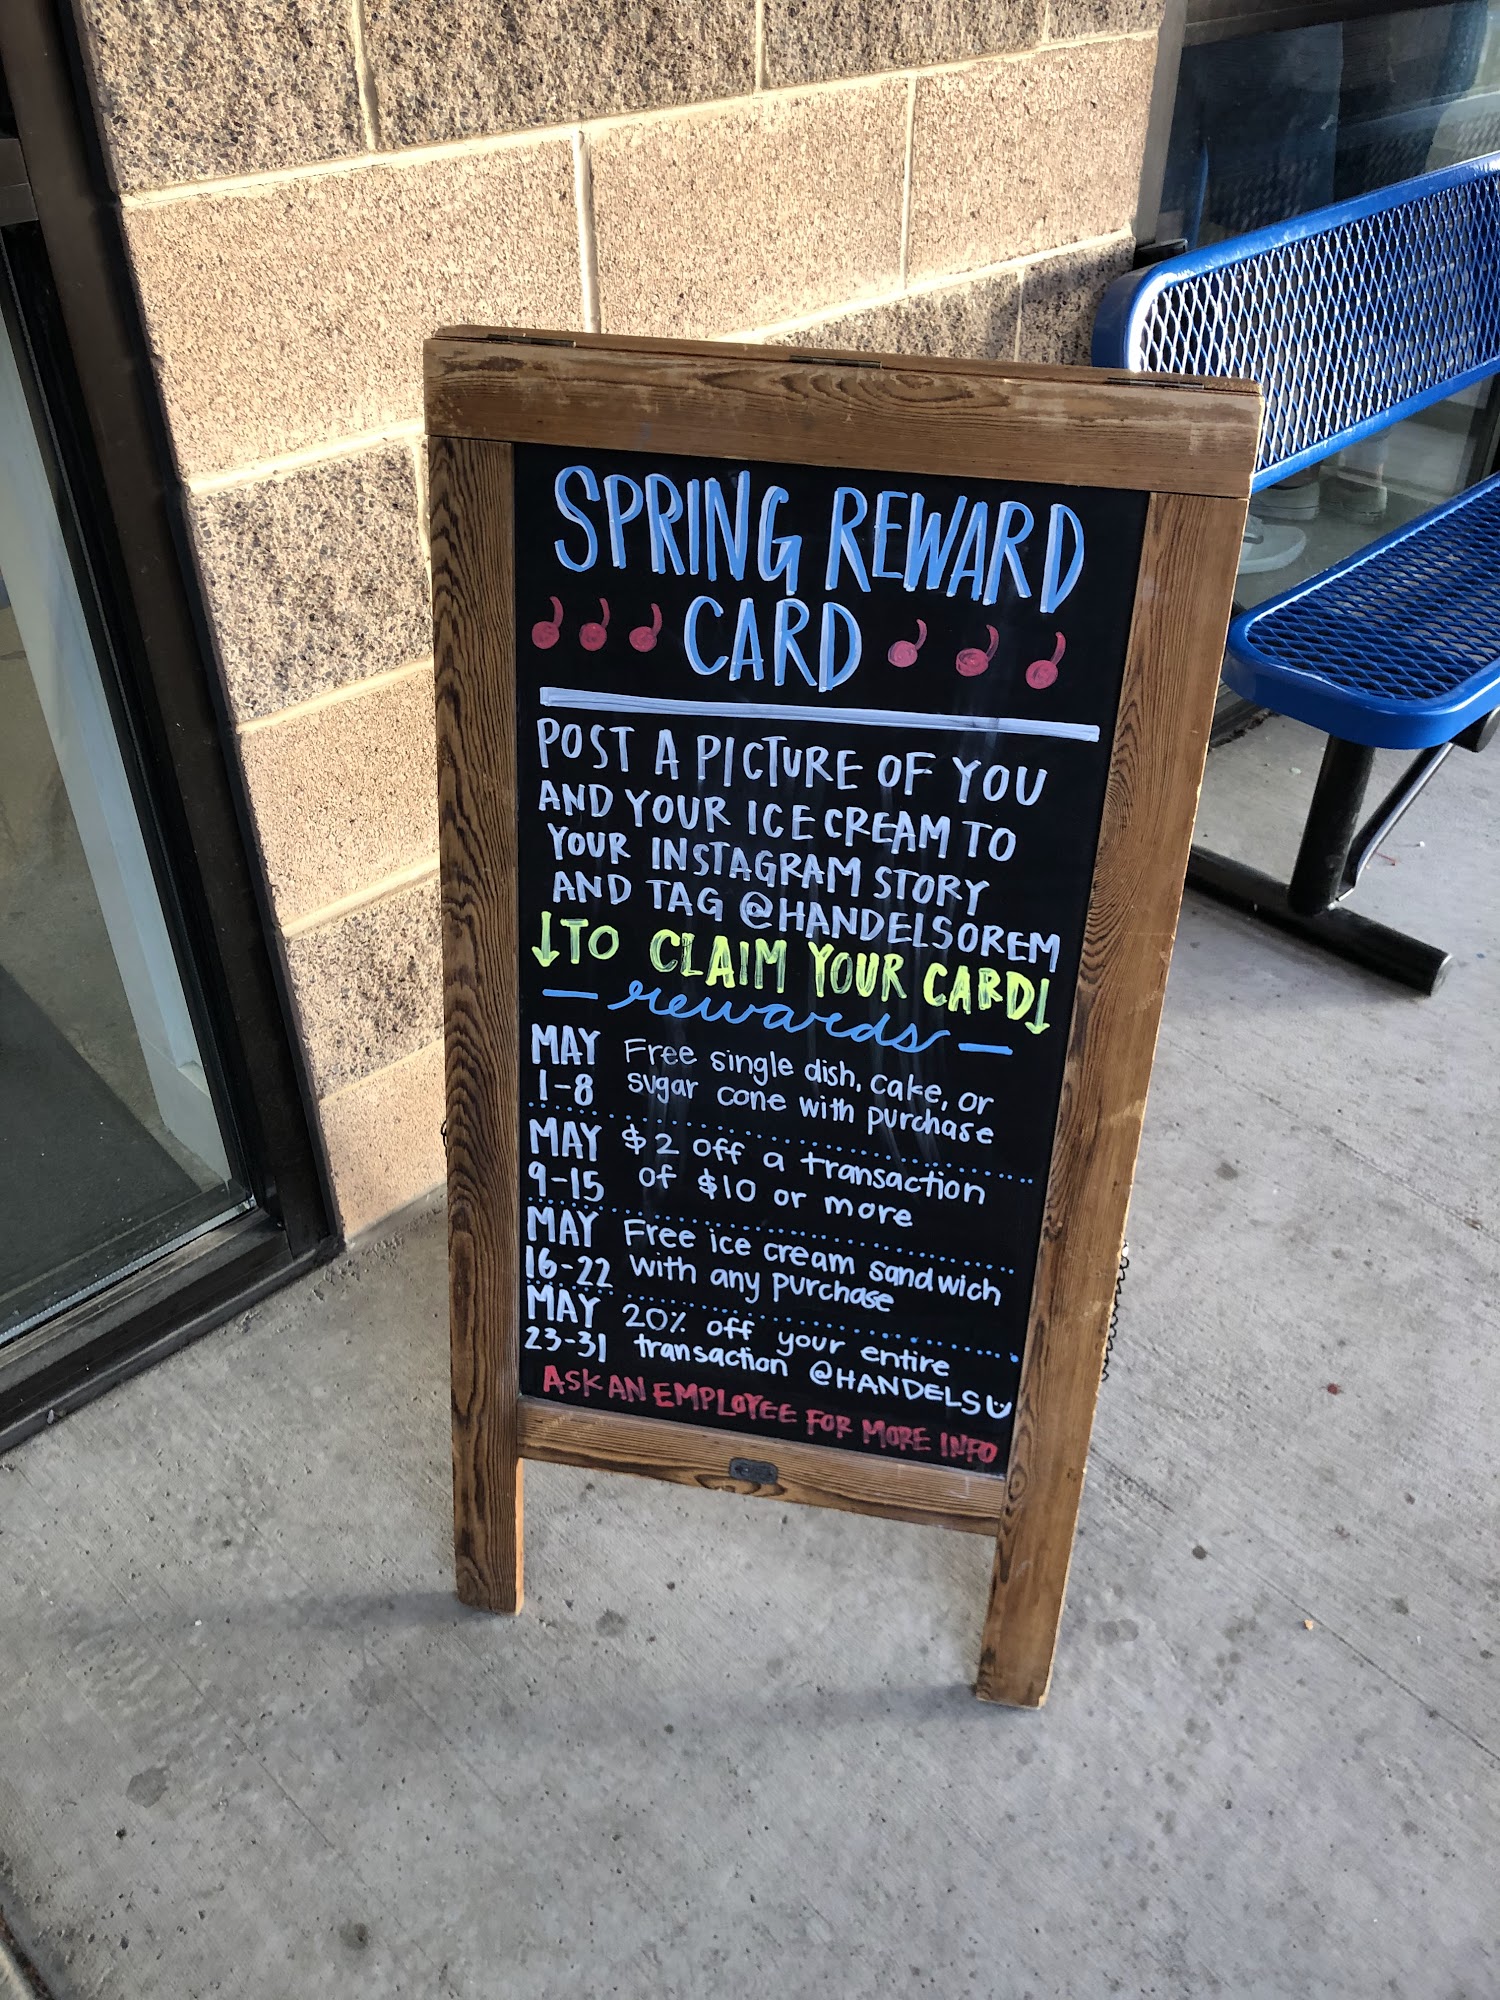 SPRING REWARD
CARD
POST A PICTURE OF YOU
AND YOUR ICE CREAM TO
YOUR INSTAGRAM STORY
AND TAG @HANDELSOREM
↓TO CLAIM YOUR CARD↓
— rewards —
MAY 1-8 Free single dish, cake, or
sugar cone with purchase
MAY 9-15 $2 off a transaction
of $10 or more
MAY 16-22 Free ice cream sandwich
with any purchase
MAY 23-31 20% off your entire
transaction @HANDELS
ASK AN EMPLOYEE FOR MORE INFO